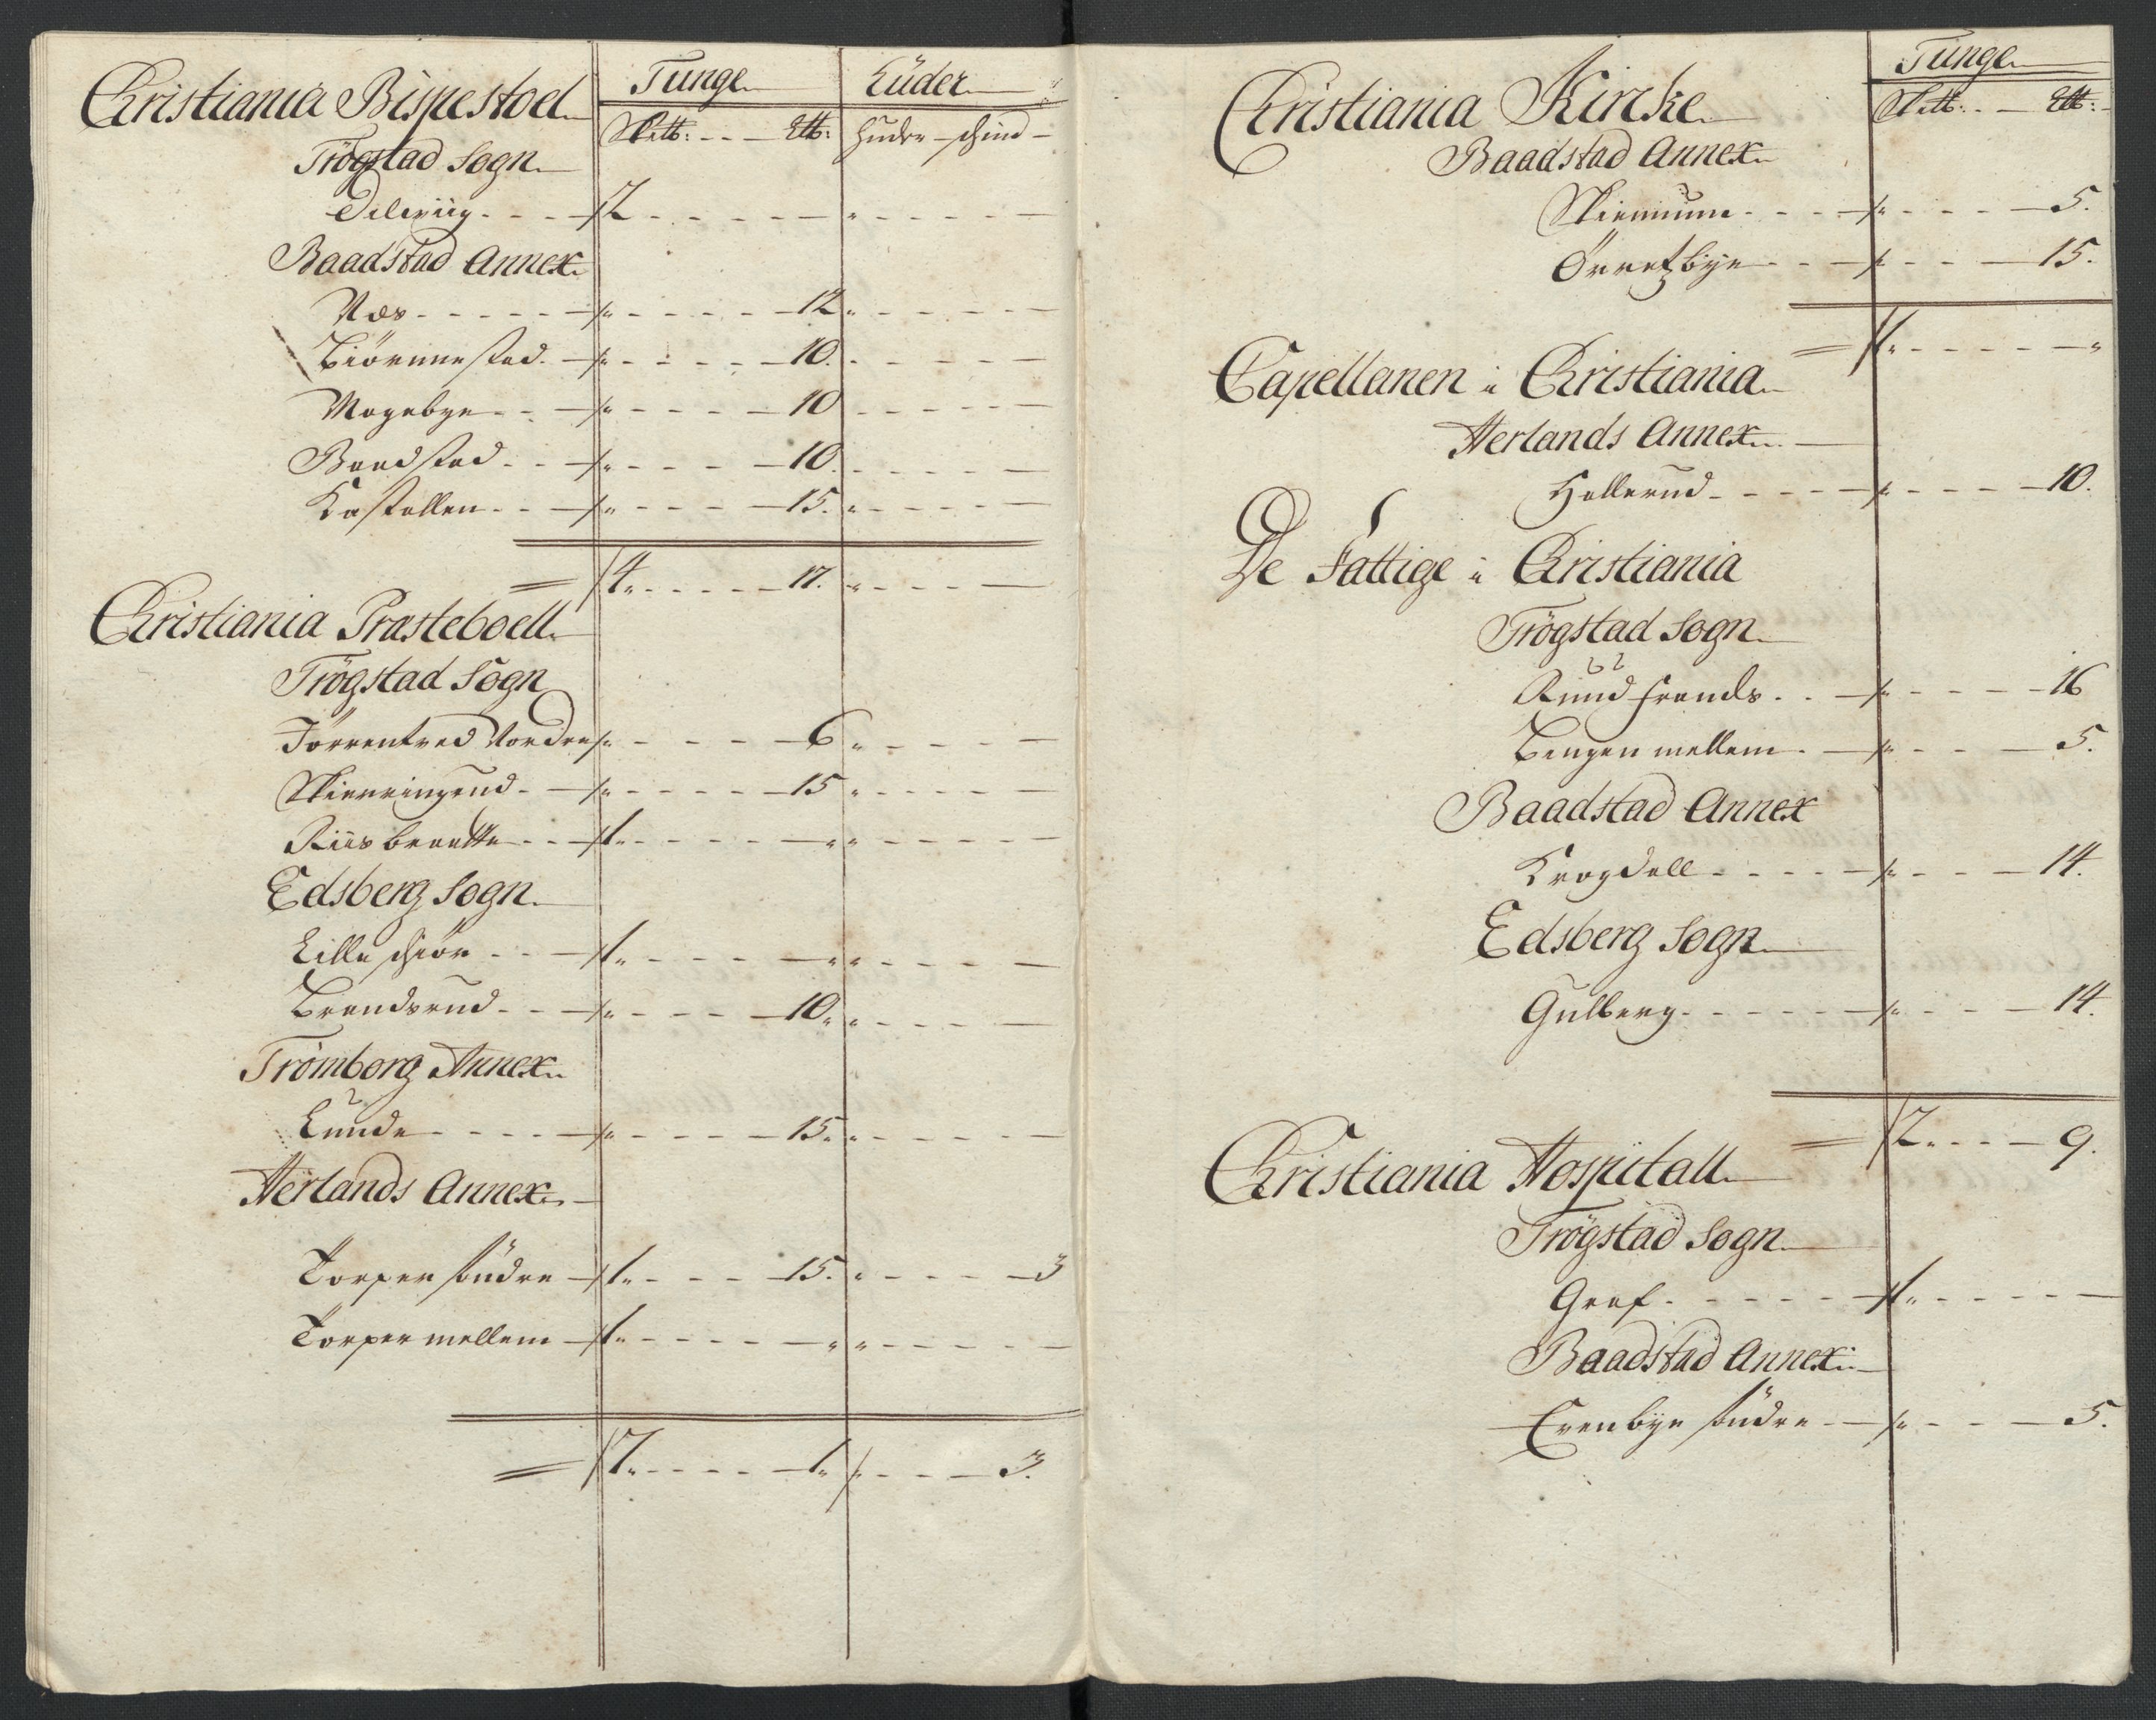 Christiania Bispestoel Tunge Huder
Skett: Ett: huder schind
Trögstad Sogn
Dilleviig 2
Baadstad Annex
Næs 12
Biörnnestad 10
Mogebye 10
Baadstad 10
Kastellen 15
4 17
Christiania Præsteboell
Trögstad Sogn
Torrentved Nordre 6
Skierringrud 15
Riisbraatte 1
Edsberg Sogn
Lille schiör 1
Brandsrud 10
Trömborg Annex
Lunde 15
Herlands Annex
Torper Söndre 1 15 3
Torper mellem 1
7 1 3
Christiania Kircke Tunge
Skett: Ett:
Baadstad Annex
Skiennum 5
Örretzbye 15
1
Capellanen i Christiania
Herlands Annex
Hallerud 10
De Fattige i Christiania
Trögstad Sogn
Ruud Frands 16
Bergen mellem 5
Baadstad Annex
Krogdall 14
Edsberg Sogn
Gulberg 14
2 9
Christiania Hospitall
Trögstad Sogn
Graf 1
Baadstad Annex
Evenbye Söndre 5